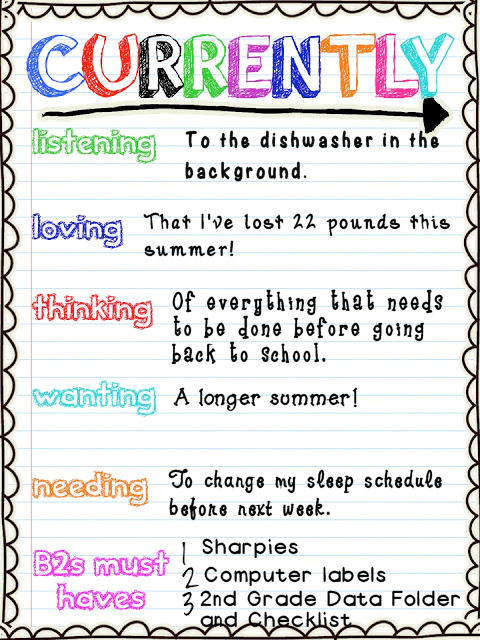 CURRENTLY
listening To the dishwasher in the
background.
loving That I've lost 22 pounds this
summer!
thinking Of everything that needs
to be done before going
back to school.
wanting A longer summer!
needing To change my sleep schedule
before next week.
B2s must
haves
1 Sharpies
2 Computer labels
3 2nd Grade Data Folder
and Checklist